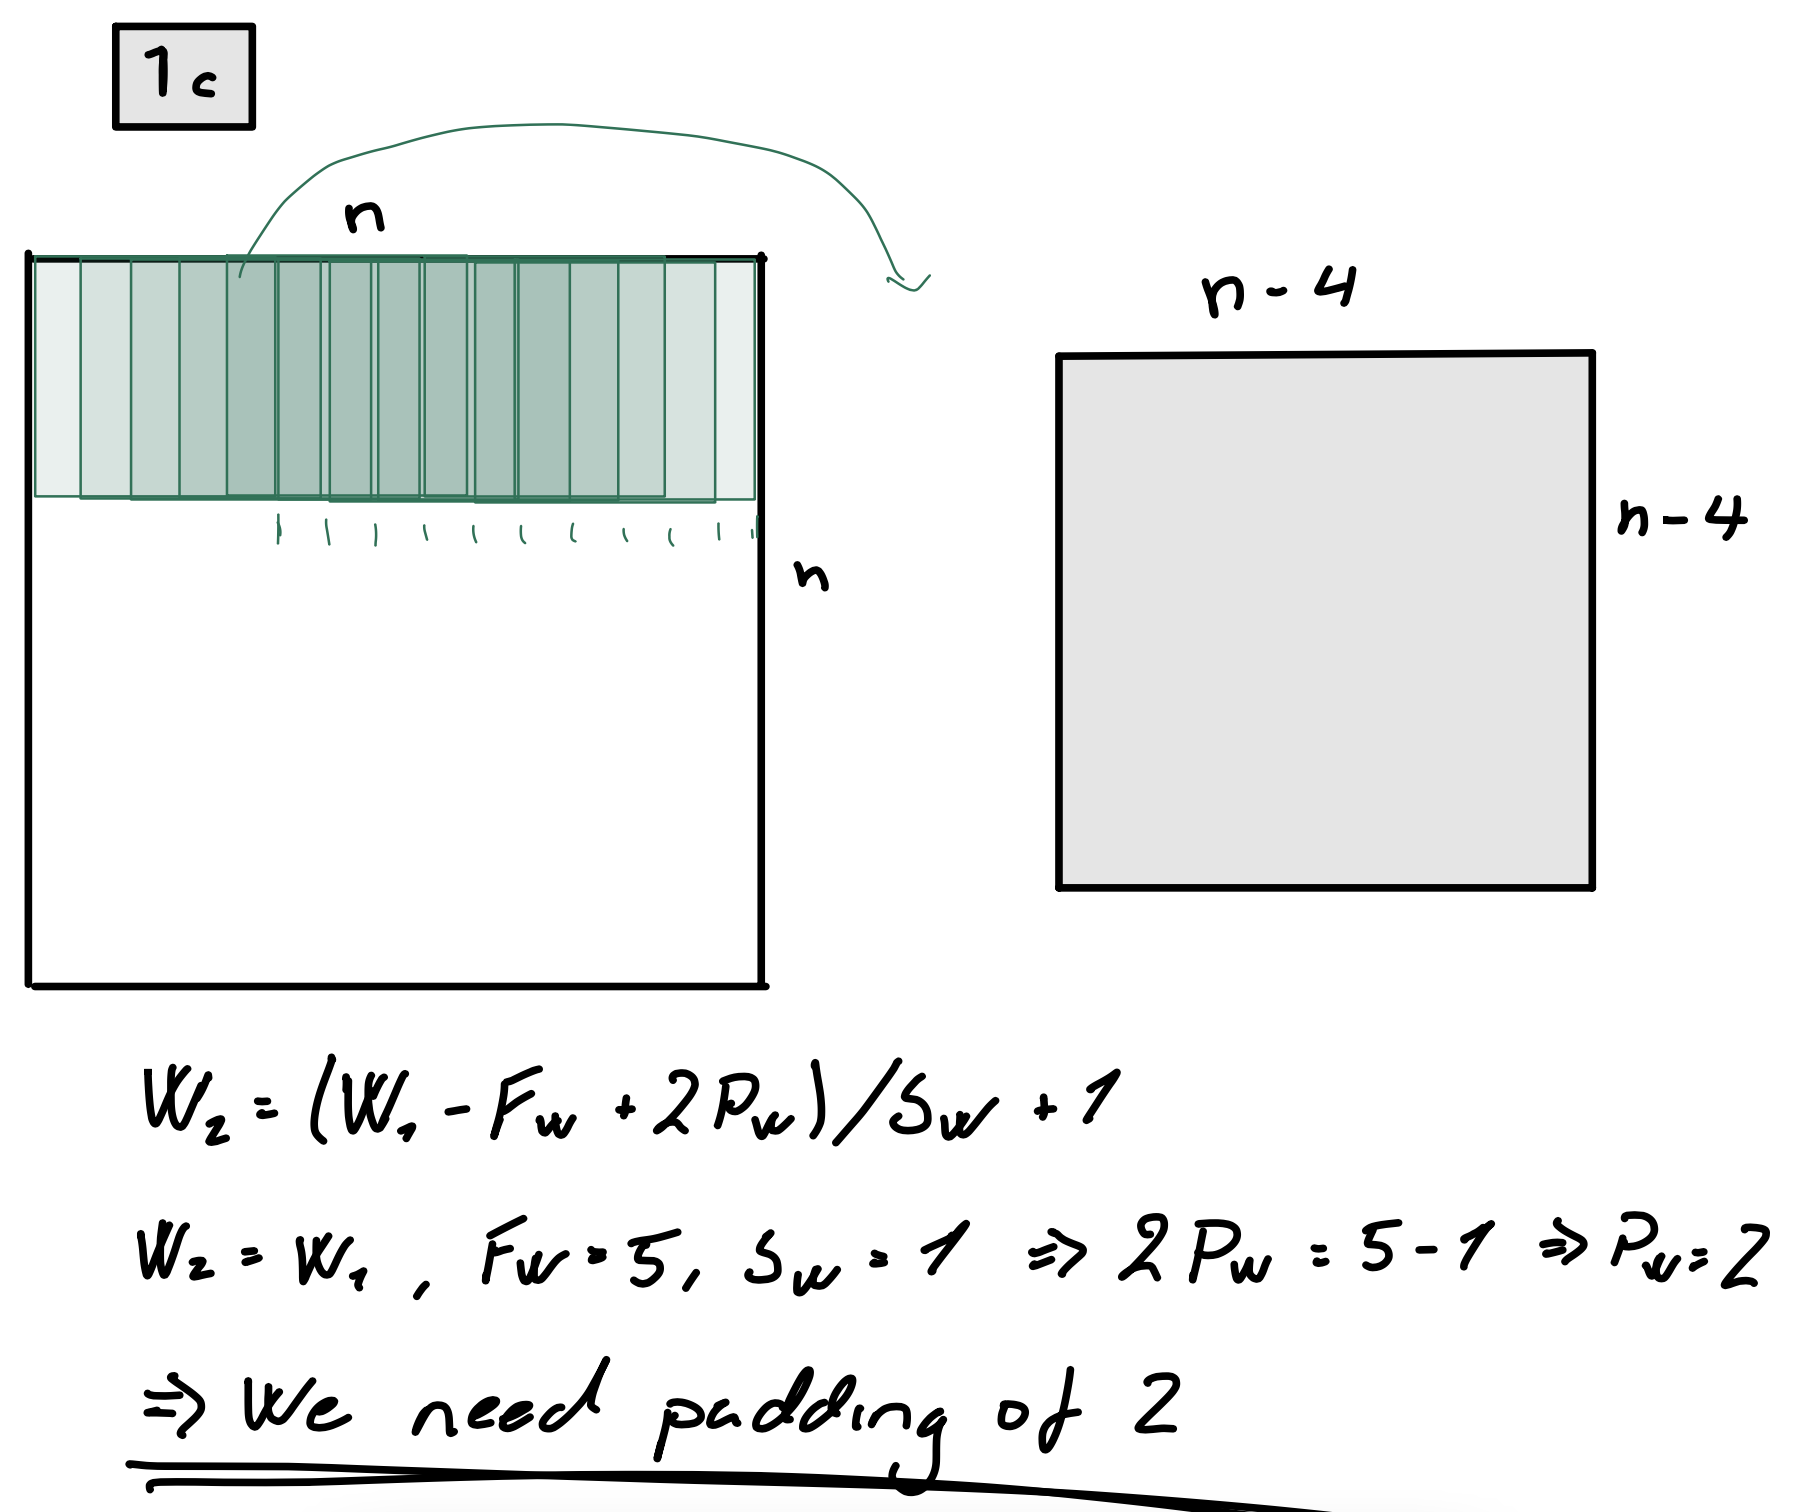 1c
n
n - 4
n - 4
n
W₂ = (W₁ - F_w + 2P_w)/S_w + 1
W₂ = W₁, F_w = 5, S_w = 1 ⇒ 2P_w = 5 - 1 ⇒ P_w = 2
⇒ We need padding of 2